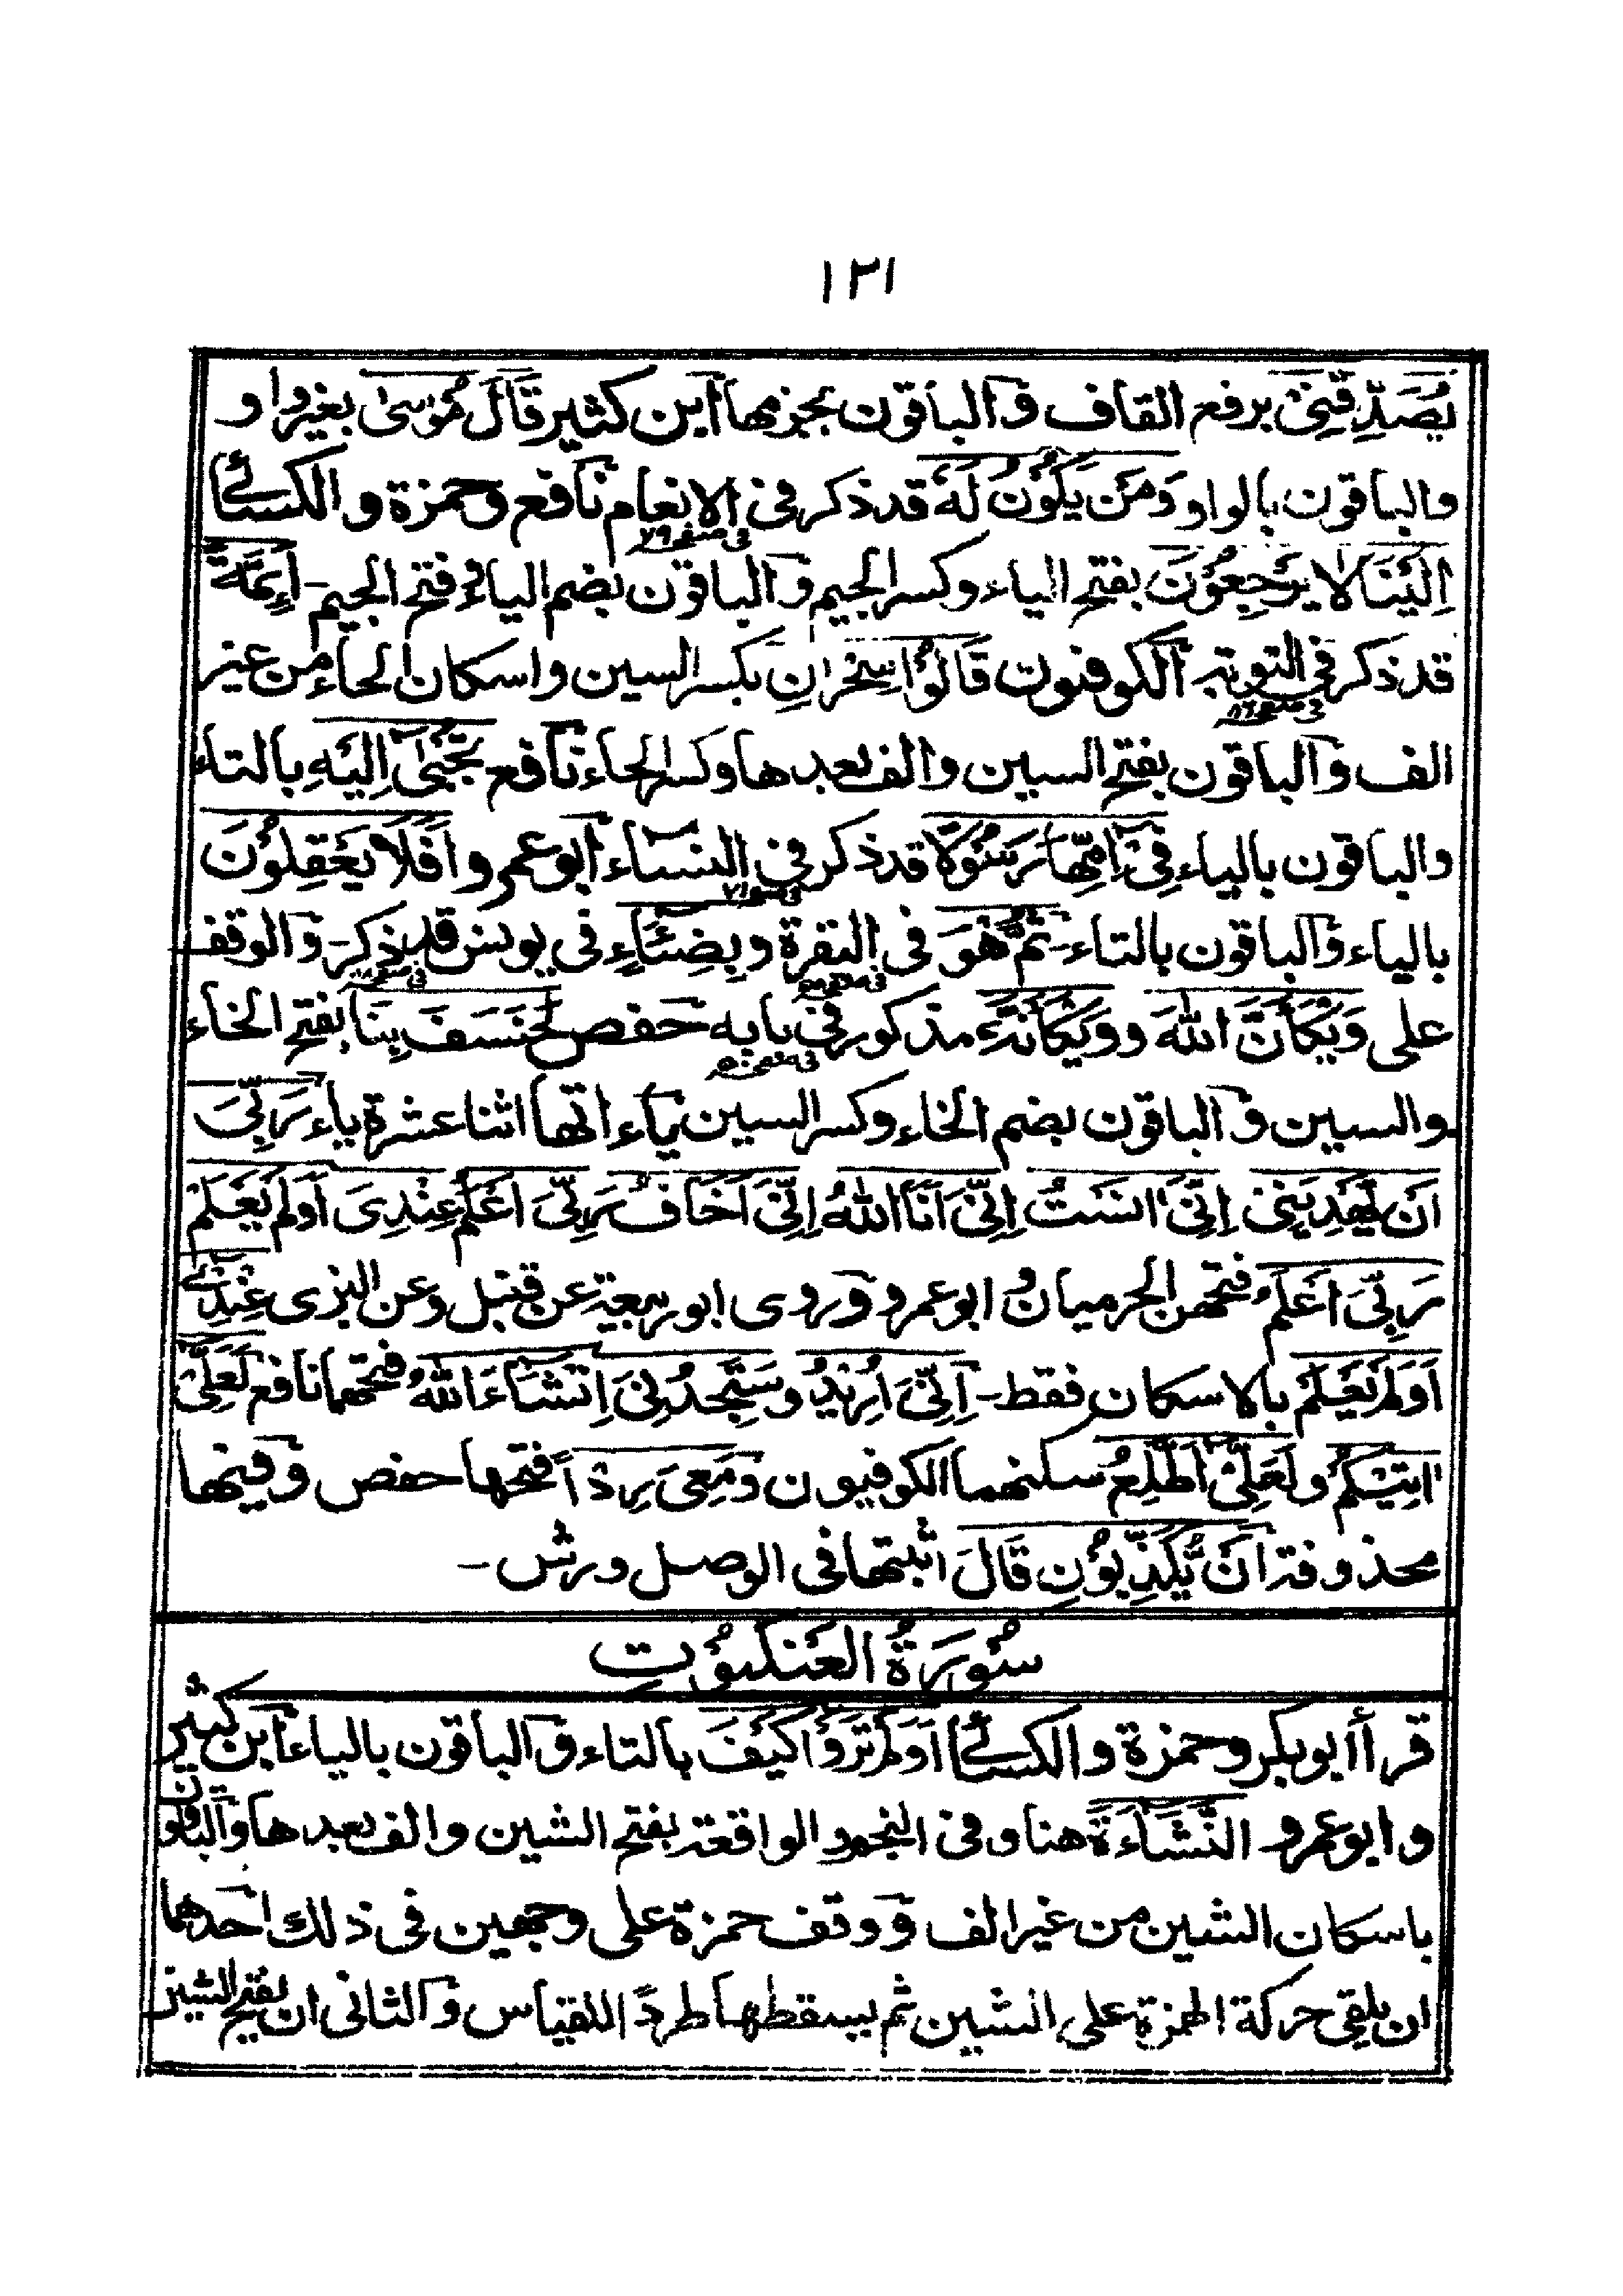 ١٢١
يُصَدِّقُنِىْ برفع القاف والباقون بجزمها ابن كثير قَالَ مُوْسٰى بغير واو
والباقون بالواو وَمَنْ يَكُوْنُ لَهٗ قد ذكر فى الانعام نافع وحمزة والكسائى
فى صفحه ٧٩
اِلَيْنَا لَا يَرْجِعُوْنَ بفتح الياء وكسر الجيم والباقون بضم الياء وفتح الجيم - اَئِمَّةً
قد ذكر فى التوبة الكوفيون قَالُوْا سِحْرَانِ بكسر السين واسكان الحاء من غير
الف والباقون بفتح السين والف بعدها وكسر الحاء نافع تُجْبٰى اِلَيْهِ بالتاء
والباقون بالياء فِىْ اُمِّهَا رَسُوْلًا قد ذكر فى النساء ابو عمرو اَفَلَا يَعْقِلُوْنَ
بالياء والباقون بالتاء - ثُمَّ هُوَ فى البقرة وبِضِيَآءٍ فى يونس قد ذكر - والوقف
على وَيْكَاَنَّ اللّٰهَ ووَيْكَاَنَّهٗ مذكور فى بابه حفص لَخَسَفَ بِنَا بفتح الخاء
والسين والباقون بضم الخاء وكسر السين ياءاتها اثنا عشرة ياء رَبِّىَ
اَنْ يَّهْدِيَنِىْ اِنِّىَ اٰنَسْتُ اِنِّىَ اَنَا اللّٰهُ اِنِّىَ اَخَافُ رَبِّىَ اَعْلَمُ عِنْدِىَ اَوَلَمْ يَعْلَمْ
رَبِّىَ اَعْلَمُ فتحهن الحرميان وابو عمرو وروى ابو ربيعة عن قنبل وعن البزى عِنْدِىْ
اَوَلَمْ يَعْلَمْ بالاسكان فقط - اِنِّىَ اُرِيْدُ وسَتَجِدُنِىَ اِنْشَآءَ اللّٰهُ فتحهما نافع لَعَلِّىْ
اٰتِيْكُمْ ولَعَلِّىْ اَطَّلِعُ سكنهما الكوفيون ومَعِىَ رِدْاً فتحها حفص وفيها
محذوفة اَنْ يُّكَذِّبُوْنِ قَالَ اثبتها فى الوصل ورش -
سُوْرَةُ العَنْكَبُوْتِ
قرأ ابو بكر وحمزة والكسائى اَوَلَمْ تَرَوْا كَيْفَ بالتاء والباقون بالياء ابن كثير
وابو عمرو النَّشَآءَةَ هنا وفى النجم والواقعة بفتح الشين والف بعدها والباقون
باسكان الشين من غير الف ووقف حمزة على وجهين فى ذلك احدهما
ان يلقى حركة الهمزة على الشين ثم يسقطها طردًا للقياس والثانى ان يفتح الشين